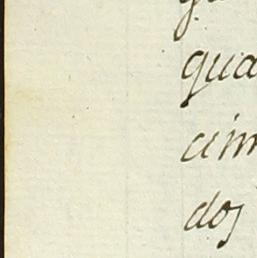 qua
cim
dos